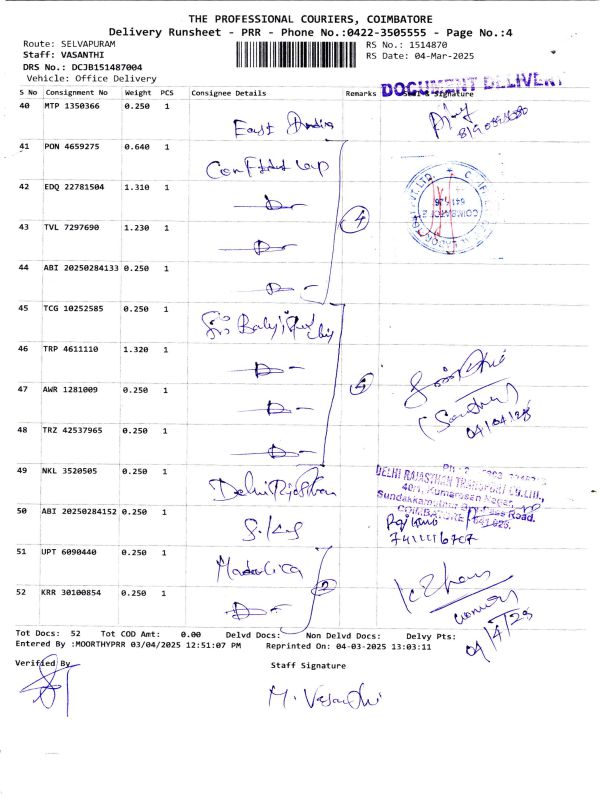 THE PROFESSIONAL COURIERS, COIMBATORE
Delivery Runsheet - PRR - Phone No.:0422-3505555 - Page No.:4
Route: SELVAPURAM
RS No.: 1514870
Staff: VASANTHI
RS Date: 04-Mar-2025
DRS No.: DCJB151487004
Vehicle: Office Delivery
DOCUMENT DELIVERY
S No Consignment No Weight PCS Consignee Details Remarks Signature
40 MTP 1350366 0.250 1
East
41 PON 4659275 0.640 1
42 EDQ 22781504 1.310 1
43 TVL 7297690 1.230 1
4
COIMBATORE
44 ABI 20250284133 0.250 1
45 TCG 10252585 0.250 1
Sri Balaji
46 TRP 4611110 1.320 1
47 AWR 1281009 0.250 1
5
04/04/25
48 TRZ 42537965 0.250 1
49 NKL 3520505 0.250 1
Delhi Rajasthan
DELHI RAJASTHAN TRANSPORT CO.LTD.,
40/1, Kumarasan Nagar,
Sundakkamuthur By-Pass Road.
COIMBATORE - 641 025.
50 ABI 20250284152 0.250 1
51 UPT 6090440 0.250 1
2
52 KRR 30100854 0.250 1
04/4/25
Tot Docs: 52 Tot COD Amt: 0.00 Delvd Docs: Non Delvd Docs: Delvy Pts:
Entered By :MOORTHYPRR 03/04/2025 12:51:07 PM Reprinted On: 04-03-2025 13:03:11
Verified By Staff Signature
M. Vasanthi